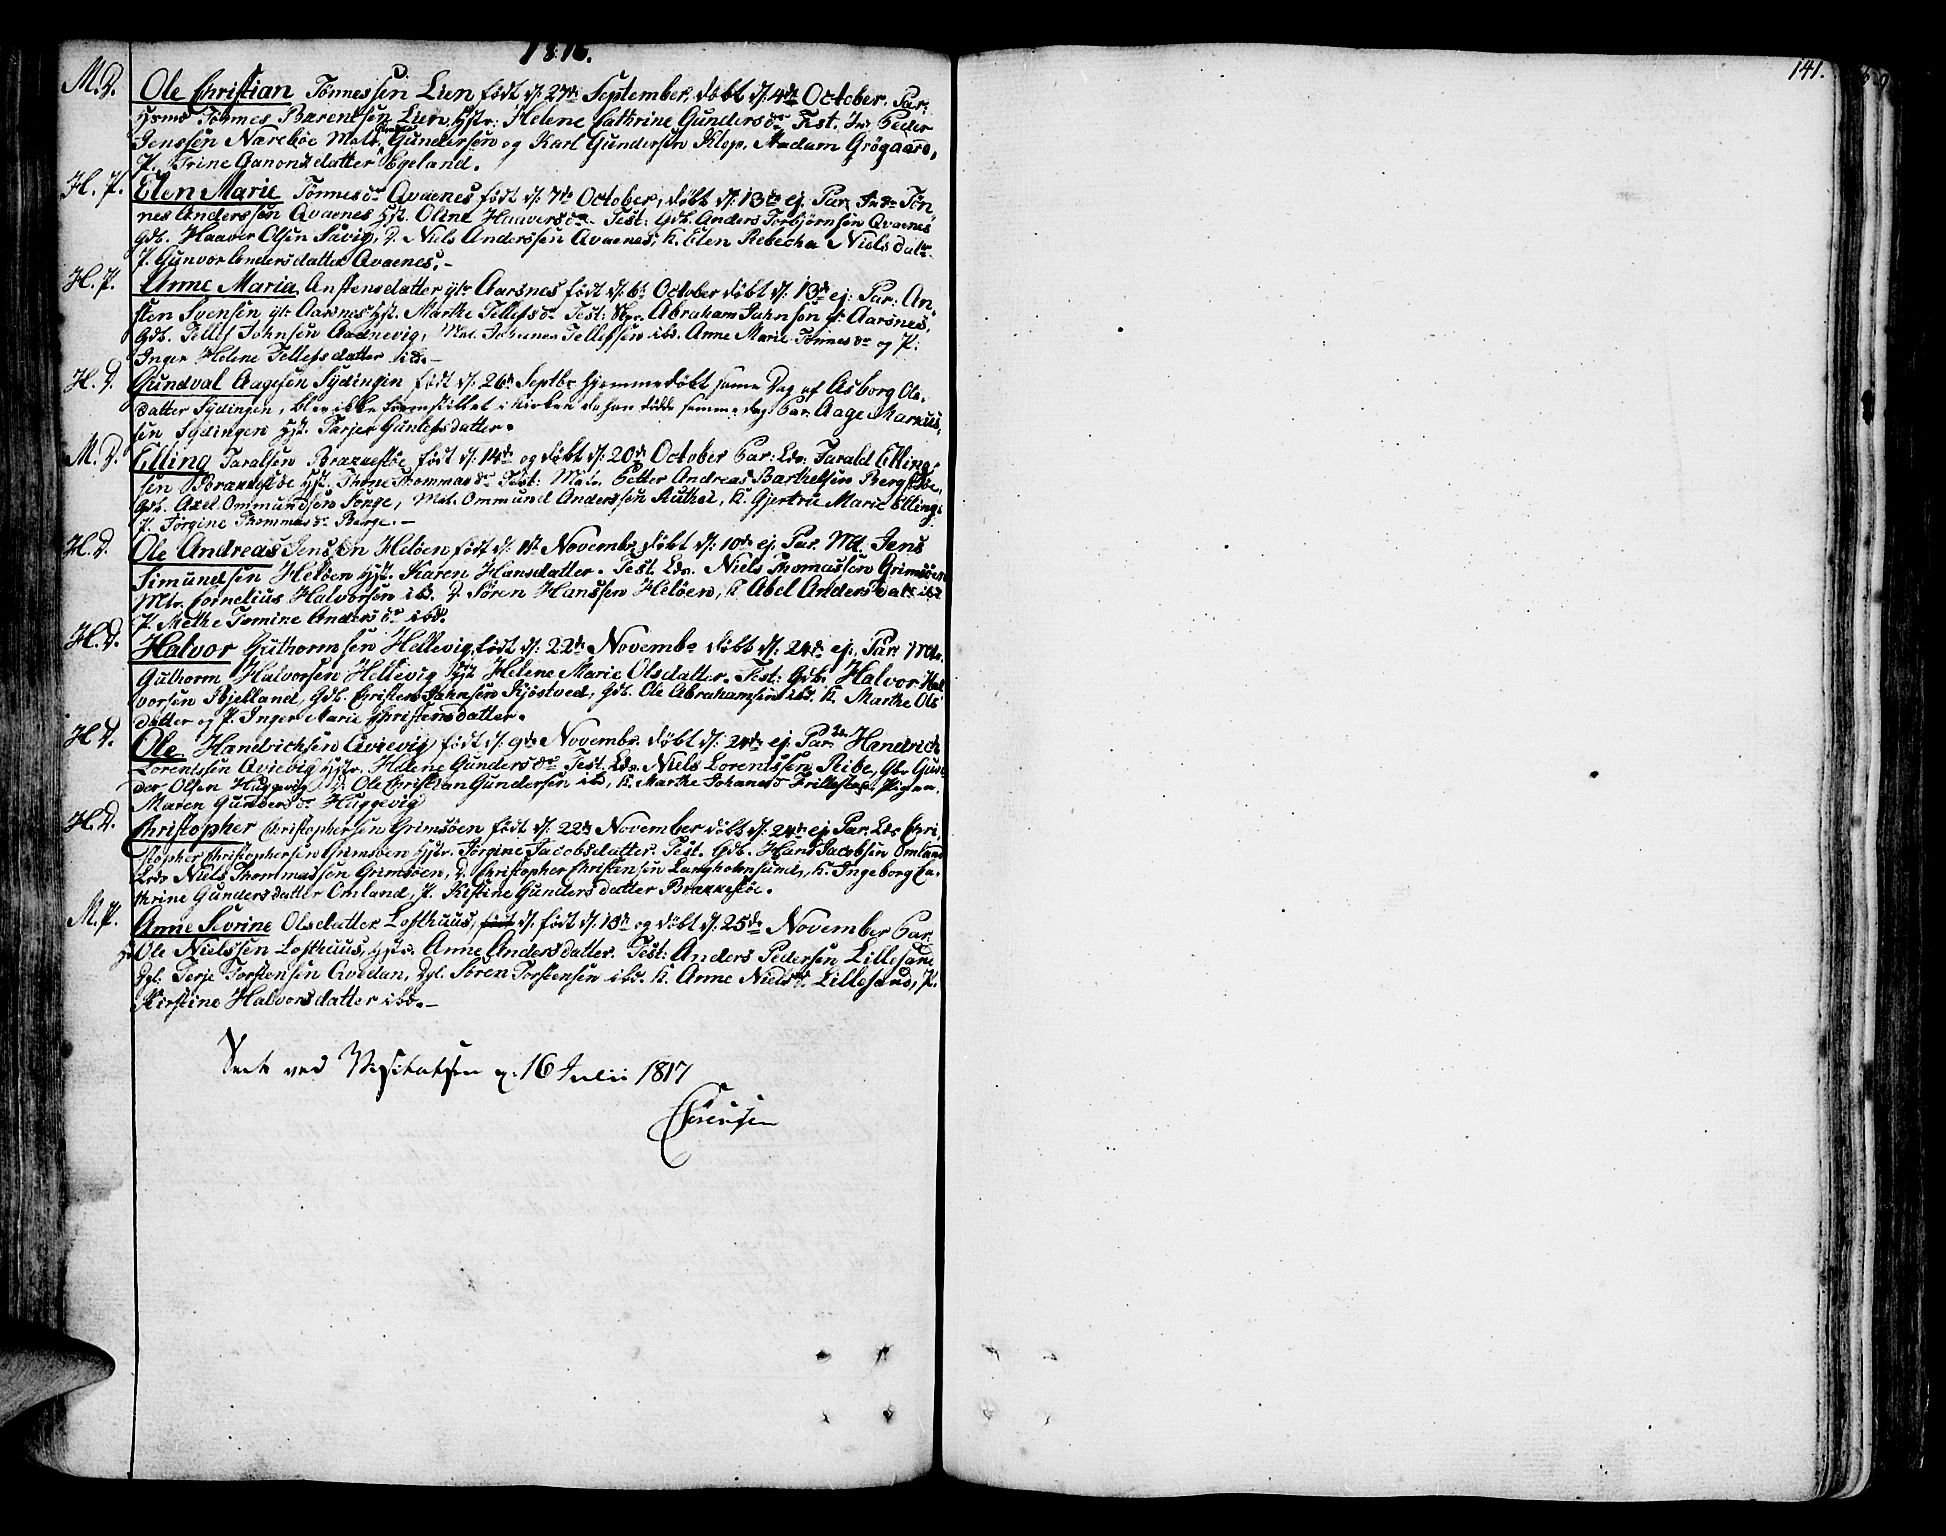 1816.
141.
M. D. Ole Christian Tønnessen Lien født d: 27de September, døbt d: 4de October. Par:
Tønnes Bærentsen Lien, Hstr: Helene Cathrine Gundersdr Test. Peder
Jenssen Narebøe Matr. Gundersen og Karl Gundersen Klep, Madam Grøgaard,
P. Trine Aanonsdatter Egeland.
H. P. Elen Marie Tønnesdr Qvaenes født d: 7de October, døbt d: 13de ej. Par: Tøn,
nes Anderssen Qvaenes Hst. Oline Haaversdr. Test: Gdb. Anders Torbjørnsen Qvaenes
Gdb. Haaver Olsen Savig, D. Niels Anderssen Qvaenes, K. Elen Rebecha Nielsdatr.
P. Gunvor Andersdatter Qvaenes.-
H. P. Anne Maria Anstensdatter ytr Aarsnes født d: 6t October døbt d: 13de ej: Par: An,
sten Svensen ytr Aarsnes Hst. Marthe Tellefsdr Test: Abraham Jahnsen Aarsnes,
Gdb. Tellef Johnsen Aaanevig, Mat. Johannes Tellefsen ibd. Anne Marie Tønnesdr og P.
Inger Helene Tellefsdatter ibd.-
H. D. Gundval Aagesen Sydingen født d: 26de Septbr hjemmedøbt samme Dag af Asborg Ols,
datter Sydingen, blev ikke fremstillet i Kirken da han døde samme dag. Par. Aage Markus,
sen Sydingen Hst. Tarjer Gunlefsdatter.
M. D. Elling Taralsen Brækkestøe født d: 14de og døbt d: 20de October Par: Lds: Tarald Elling,
sen Brækkestøe Hst. Thone Thommasdr. Test: Matr. Petter Andreas Barthelsen Bergstøe,
Gdb. Axel Ommundsen Songe, Mat. Ommund Anderssen Authei, K. Gjertru Marie Ellings
P. Jorgine Thommasdr Berge.-
H. D. Ole Andreas Jenssen Heløen født d: 1st Novembr døbt d: 10de ej. Par. Md. Jens
Simundsen Heløen Hst. Karen Hansdatter. Test. Lds. Niels Thomassen Grimsøen
Mtr. Cornelius Halvorsen ibd. D. Søren Hanssen Heløen, K. Abel Andersdatr ibd
P. Methe Tomine Andersdr ibd.
H. D. Halvor Guthormsen Hellevig, født d: 22de Novembr døbt d. 24de ej. Par: Mtr.
Guthorm Halvorsen Hellevig Hst Helene Marie Olsdatter. Test: Gdbr Halvor Hal
vorsen Kjelland, Gdb. Christen Jahnsen Kjøstved, Gdb. Ole Abrahamsen ibd. K. Marthe Ols
datter og P. Inger Marie Christensdatter.
H. D. Ole Handrichsen Qvievig, født d: 9de Novembr. døbt d: 24de ej. Par: Handrich
Lorentssen Qvievig Hstr. Helene Gundersdr Test. Lds. Niels Lorentssen Ribe, Gbr Gun,
der Olsen Huggevig, D. Ole Christian Gundersen ibd, K. Marthe Johansdr Trillestøe. Pigen
Maren Gundersdr Huggevig
H. D. Christopher Christophersen Grimsøen født d: 22de November døbt d: 24de ej Par. Lds Chri,
stopher Christophersen Grimsøen Hstr. Jørgine Jacobsdatter. Test. Gdb. Hans Jacobsen Omland
Lds Niels Thommassen Grimsøen, D. Christopher Christensen Langholmsund, K. Ingeborg Ca,
thrine Gundersdatter Omland, P. Kistine Gundersdatter Brækkestøe.
M. P. Anne Sevrine Olsdatter Lofthuus, født d. født d: 18de og døbt d: 25de November Par.
Ole Nielssen Lofthuus, Hstr. Anne Andersdatter. Test: Anders Pedersen Lillesand
Ygl. Terje Torstensen Qvedan, Ygl. Søren Torstensen ibd. K. Anne Nielsdr. Lillesand, P.
Kirstine Halvorsdatter ibd.-
Seet ved Visitatsen d: 16 Julii 1817
Sørensen